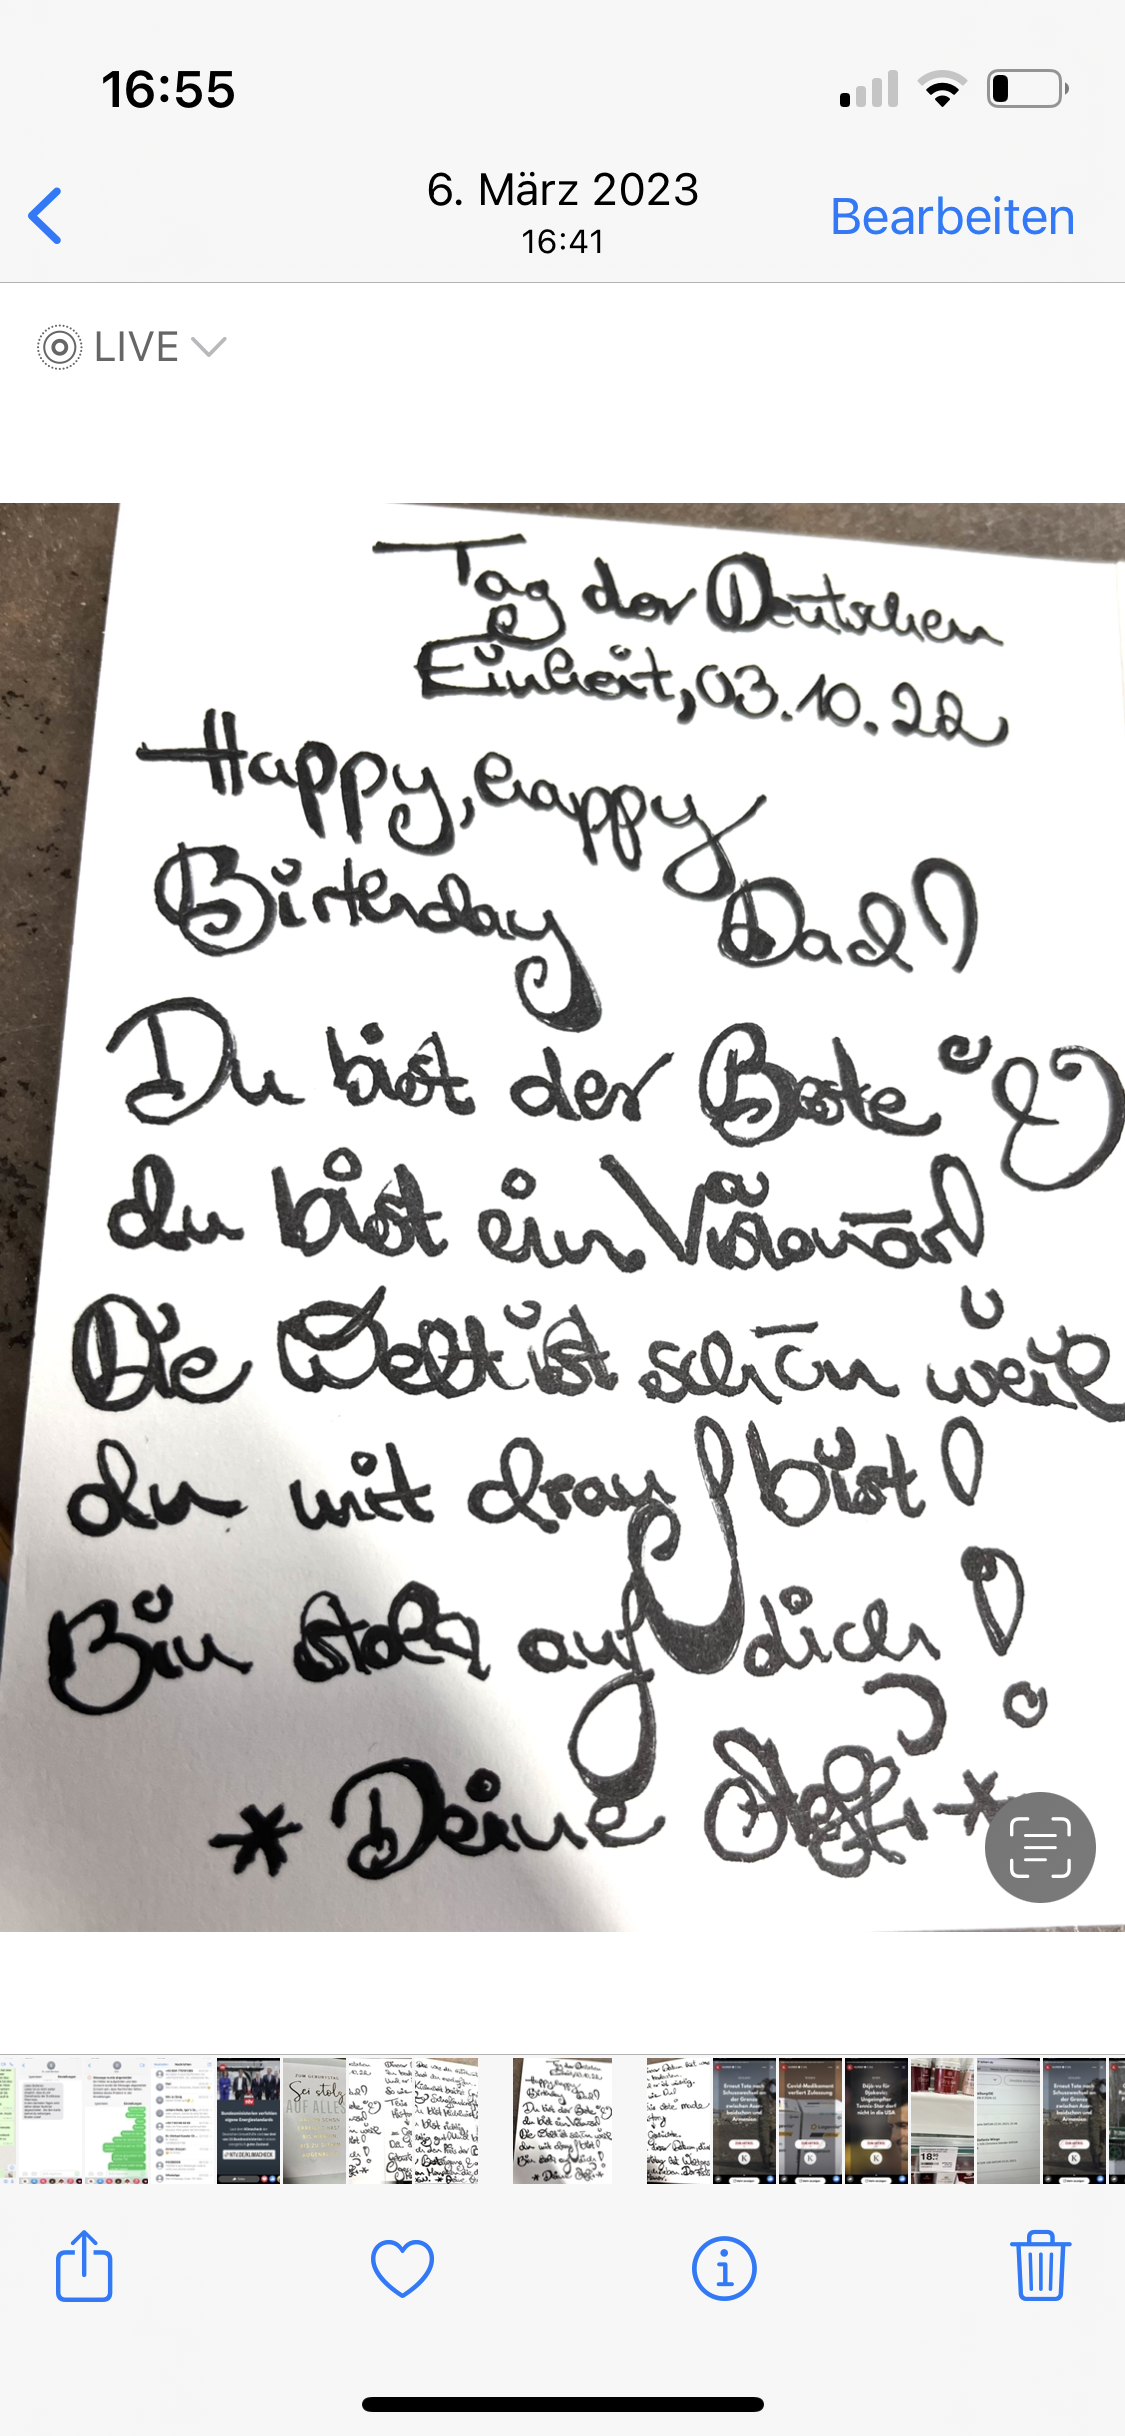 16:55
6. März 2023
16:41
Bearbeiten
LIVE
Tag der Deutschen
Einheit, 03.10.22
Happy, happy
Birthday Dad!
Du bist der Beste
du bist ein Visionär!
Die Welt ist schön weil
du mit drauf bist!
Bin stolz auf dich!
* Deine Steffi *
ZUM GEBURTSTAG
Sei stolz
AUF ALLES
18.95